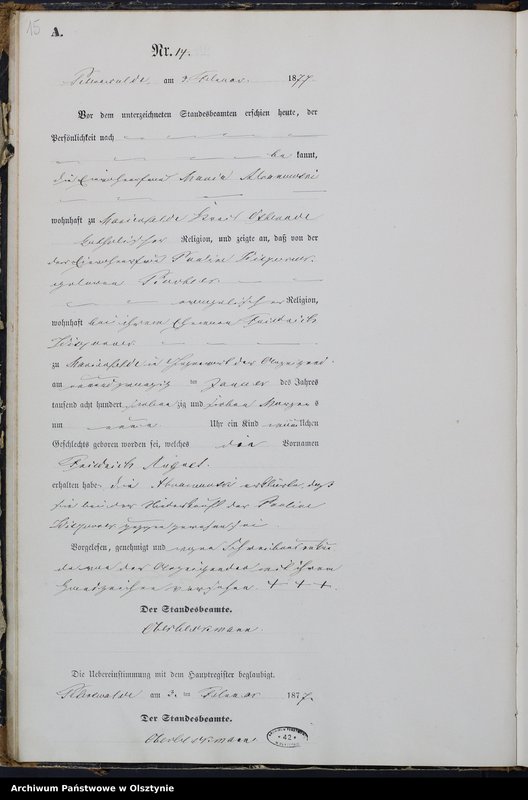 15
A.
Nr. 14.
am 3. Februar 1877
Vor dem unterzeichneten Standesbeamten erschien heute, der
Persönlichkeit nach
be kannt,
die Maria
wohnhaft zu Marienfelde Kreis Osterode
katholischer Religion, und zeigte an, daß von der
der Pauline
geborenen
evangelischer Religion,
wohnhaft bei ihrem Ehemann Friedrich
zu Marienfelde in Gegenwart der Anzeigenden
am neunundzwanzig ten Januar des Jahres
tausend acht hundert siebenzig und sieben Morgens
um neun Uhr ein Kind männlichen
Geschlechts geboren worden sei, welches die Vornamen
Friedrich August.
erhalten habe. die erklärte, daß
sie bei der Niederkunft der Pauline
zugegen gewesen sei.
Vorgelesen, genehmigt und wegen Schreibensunkun
de von der Anzeigenden mit ihrem
Handzeichen versehen. + + +.
Der Standesbeamte.
Die Uebereinstimmung mit dem Hauptregister beglaubigt.
am 3. ten Februar 1877.
Der Standesbeamte.
42
Archiwum Państwowe w Olsztynie